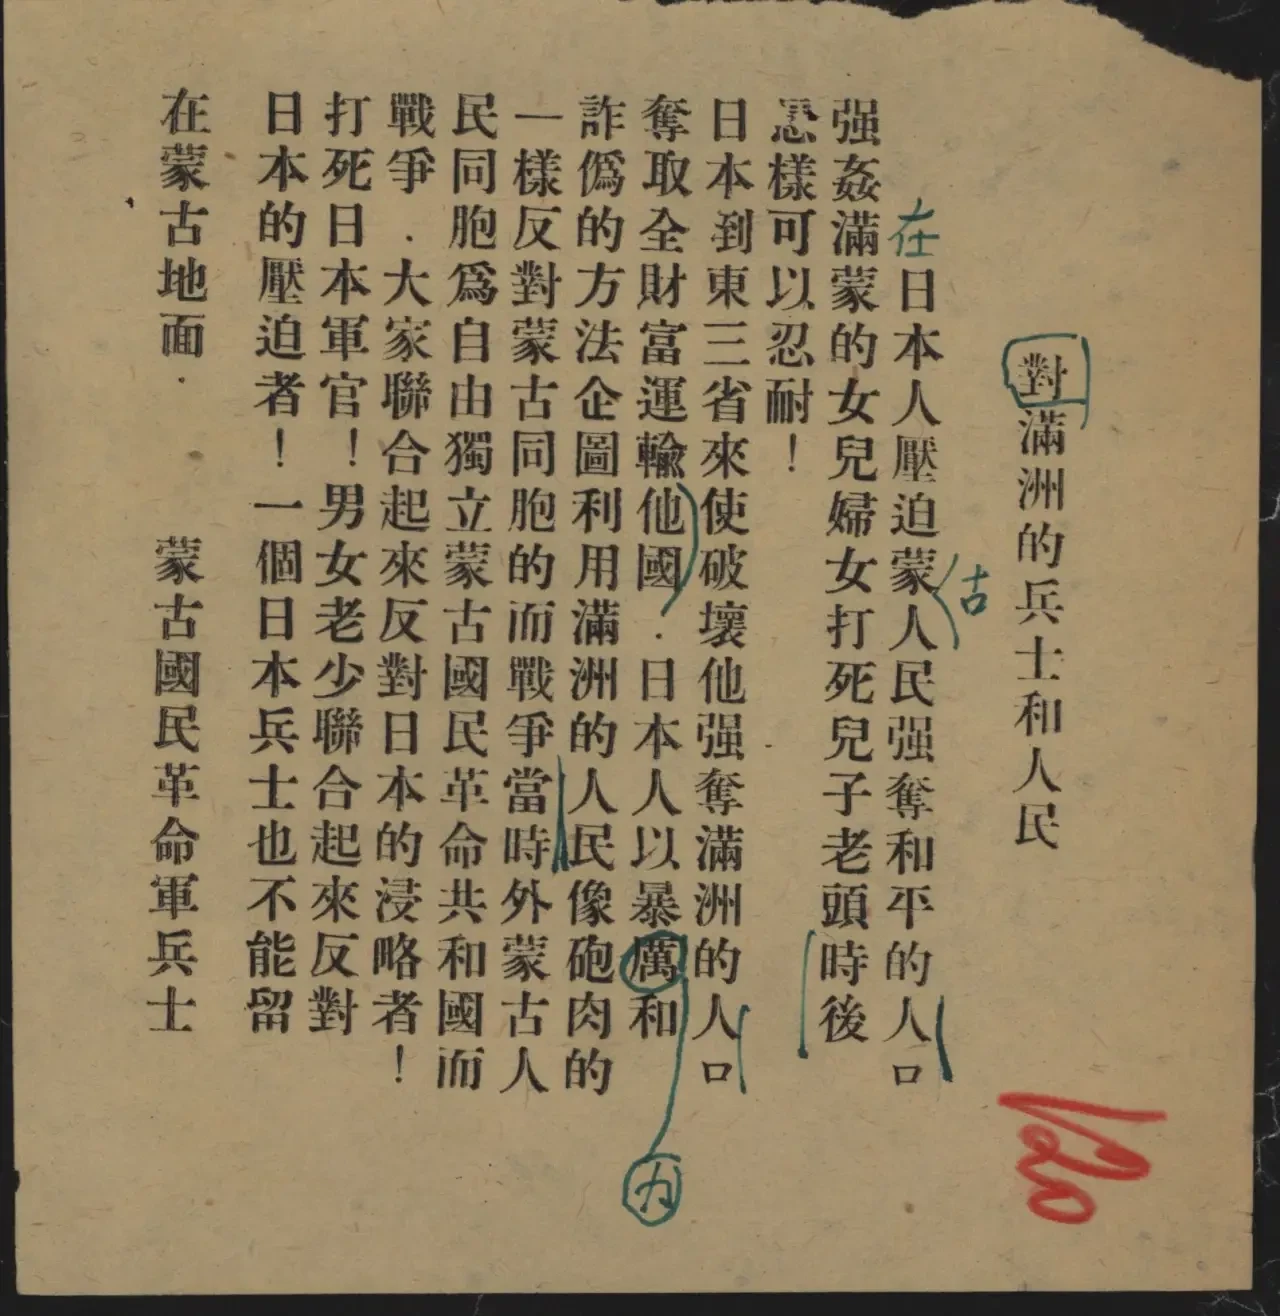 對滿洲的兵士和人民
在日本人壓迫蒙人民强奪和平的人口
古
强姦滿蒙的女兒婦女打死兒子老頭時後
怎樣可以忍耐！
日本到東三省來使破壞他强奪滿洲的人口
奪取全財富運輸他國．日本人以暴厲和
力
詐僞的方法企圖利用滿洲的人民像砲肉的
一樣反對蒙古同胞的而戰爭當時外蒙古人
民同胞爲自由獨立蒙古國民革命共和國而
戰爭．大家聯合起來反對日本的浸略者！
打死日本軍官！男女老少聯合起來反對
日本的壓迫者！一個日本兵士也不能留
在蒙古地面．　蒙古國民革命軍兵士